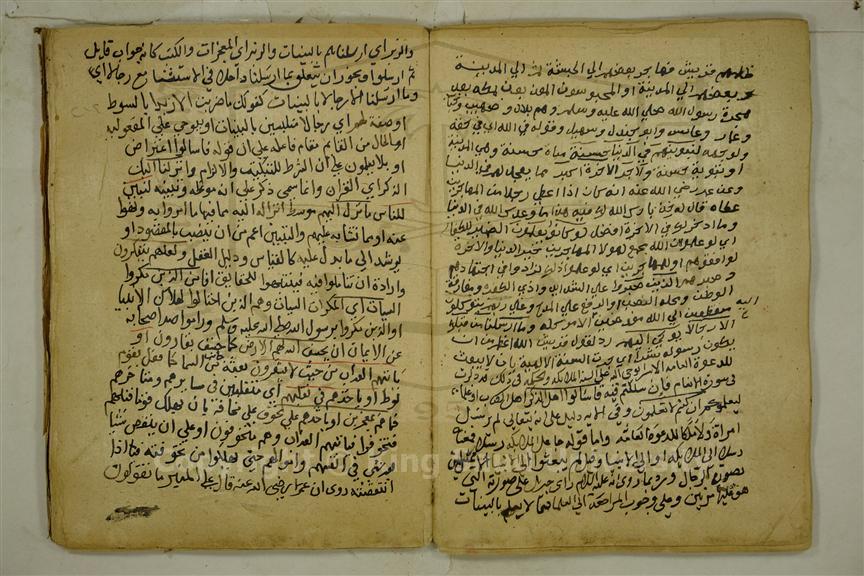 ظلمهم قريش فهاجر بعضهم الى الحبشة ثم الى المدينة
وبعضهم الى المدينة او المحبوسون المعذبون بمكة بعد
هجرة رسول الله صلى الله عليه وسلم وهم بلال وصهيب وخباب
وعمار وعابس وابو جندل وسهيل وقوله في الله اي في حقه
ولوجهه لنبوئنهم في الدنيا حسنة مباءة حسنة وهي المدينة
او تبوئة حسنة ولاجر الآخرة اكبر مما يعجل لهم في الدنيا
وعن عمر رضي الله عنه انه كان اذا اعطى رجلا من المهاجرين
عطاء قال له خذ بارك الله لك فيه هذا ما وعدك الله في الدنيا
وما ادخر لك في الآخرة افضل لو كانوا يعلمون الضمير للكفار
اي لو علموا ان الله يجمع لهؤلاء المهاجرين خير الدنيا والآخرة
لوافقوهم او للمهاجرين اي لو علموا ذلك لزادوا في اجتهادهم
وصبرهم الذين صبروا على الشدائد واذى الكفرة ومفارقة
الوطن ومحله النصب او الرفع على المدح وعلى ربهم يتوكلون
منقطعين الى الله مفوضين الامر كله وما ارسلنا من قبلك
اليه
الا رجالا يوحى اليهم رد لقول قريش الله اعظم من ان
يكون رسوله بشرا اي جرت السنة الالهية بان لا يبعث
للدعوة العامة الا بشرا يوحي اليه على السنة الملائكة والحكمة في ذلك قد ذكرت
في سورة الانعام فان شككتم فيه فاسألوا اهل الذكر اهل الكتاب او علماء
ليعلموكم ان كنتم لا تعلمون وفي الآية دليل على انه تعالى لم يرسل
امراة ولا ملكا للدعوة العامة واما قوله جاعل الملائكة رسلا فمعناه
رسلا الى الملائكة او الى الانبياء وقيل لم يبعثوا الى الانبياء الا متمثلين
بصورة الرجال ورد بما روي انه عليه السلام راى جبريل على صورة التي
هو عليها مرتين وعلى وجوب المراجعة الى العلماء فيما لا يعلم بالبينات
والزبر اي ارسلناهم بالبينات والزبر اي المعجزات والكتب كانه جواب قايل
بم ارسلوا ويجوز ان يتعلق بما ارسلنا داخلا في الاستثناء مع رجالا اي
وما ارسلنا الا رجالا بالبينات كقولك ما ضربت الا زيدا بالسوط
او صفة لهم اي رجالا ملتبسين بالبينات او بيوحى على المفعولية
او الحال من القائم مقام فاعله على ان قوله فاسألوا اعتراض
او بلا يعلمون على ان الشرط للتبكيت والالزام وانزلنا اليك
الذكر اي القرآن وانما سمي ذكرا لانه موعظة وتنبيه لتبين
للناس ما نزل اليهم بتوسط انزاله اليك مما فيها امروا به ونهوا
عنه او مما تشابه عليهم والتبيين اعم من ان ينص بالمقصود او
يرشد الى ما يدل عليه كالقياس ودليل العقل ولعلهم يتفكرون
وارادة ان يتأملوا فيه فينتبهوا للحقايق افأمن الذين مكروا
السيات اي المكرات السيات وهم الذين احتالوا لهلاك الانبيا
او الذين مكروا برسول الله صلى الله عليه وسلم وراموا صد اصحابه
عن الايمان ان يخسف الله بهم الارض كما خسف بقارون او
يأتيهم العذاب من حيث لا يشعرون بغتة من السما كما فعل بقوم
لوط او يأخذهم في تقلبهم اي متقلبين في مسايرهم ومتاجرهم
فما هم بمعجزين او يأخذهم على تخوف على مخافة بان يهلك قوما قبلهم
فتخوفوا فياتيهم العذاب وهم متخوفون او على ان ينقص شيئا
فشيئا في انفسهم واموالهم حتى يهلكوا من تخوفته اذا
انتقصته روي ان عمر رضي الله عنه قال على المنبر ما تقولون